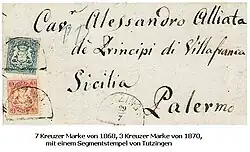 Cav.r Alessandro Alliata
di Principi di Villafranca
Sicilia
Palermo
7 Kreuzer Marke von 1868, 3 Kreuzer Marke von 1870,
mit einem Segmentstempel von Tutzingen